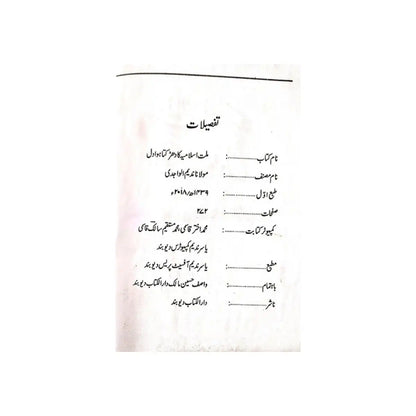 تفصیلات
نام کتاب ..............: ملت اسلامیہ کا دھڑکتا ہوا دل
نام مصنف ..............: مولانا ندیم الواجدی
طبع اوّل ..............: ۱۴۳۹ھ/۲۰۱۸ء
صفحات ..............: ۲۷۲
کمپیوٹر کتابت ..............: محمد اختر قاسمی، محمد مستقیم سالک قاسمی
یاسر ندیم کمپیوٹرس دیوبند
مطبع ..............: یاسر ندیم آفسیٹ پریس دیوبند
باہتمام ..............: واصف حسین مالک دارالکتاب دیوبند
ناشر ..............: دارالکتاب دیوبند